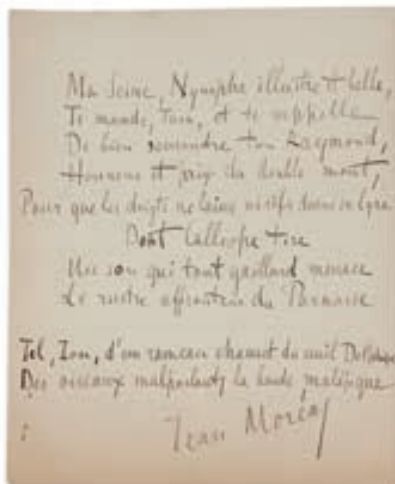 Ma Seine, Nymphe illustre et belle,
Te mande, et te rappelle
De bien semondre ton Raymond,
Honneur et prix du double mont,
Pour que les doigts ne laisse oisifs lyre
Dont Calliope tire
Un son qui tant gaillard menace
Le rustre affronteur du Parnasse
Tel, Ion, d'un rameau chassait du seuil
Des oiseaux la bande maléfique
Jean Moréas